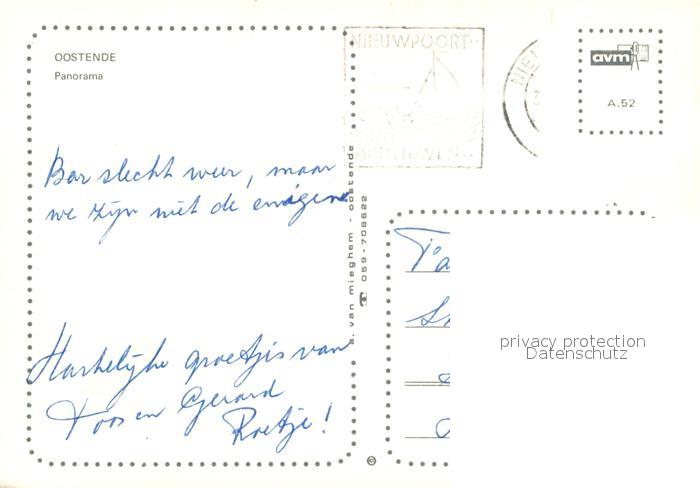 OOSTENDE
Panorama
NIEUWPOORT
JACHTHAVEN
NIEU
avm
A.52
Bar slecht weer, maar
we zijn niet de enigen
van mieghem - oostende
059-708622
Hartelijke groetjes van
Toos en Gerard
Roetje!
privacy protection
Datenschutz